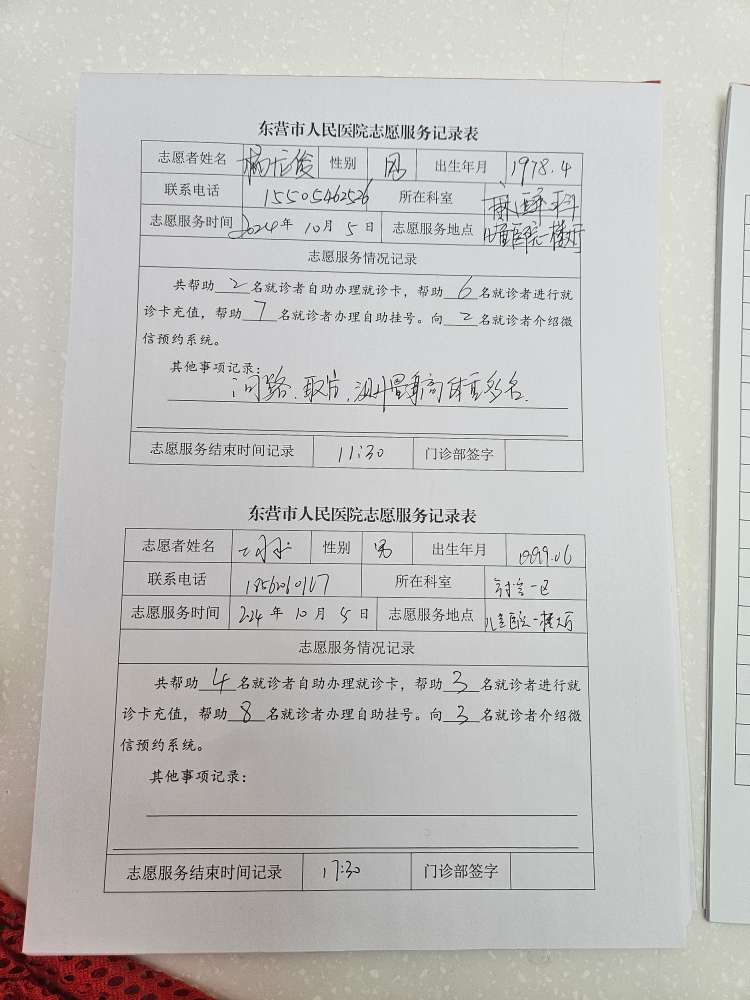 东营市人民医院志愿服务记录表
志愿者姓名 性别 男 出生年月 1978.4
联系电话 15505462526 所在科室 麻醉手术科
志愿服务时间 2024年 10月 5日 志愿服务地点 儿童医院一楼大厅
志愿服务情况记录
共帮助 2 名就诊者自助办理就诊卡，帮助 6 名就诊者进行就
诊卡充值，帮助 7 名就诊者办理自助挂号。向 2 名就诊者介绍微
信预约系统。
其他事项记录：
问路、取片、测量身高体重多名.
志愿服务结束时间记录 11:30 门诊部签字
东营市人民医院志愿服务记录表
志愿者姓名 性别 男 出生年月 1999.06
联系电话 所在科室 一区
志愿服务时间 2024年 10月 5日 志愿服务地点 儿童医院一楼大厅
志愿服务情况记录
共帮助 4 名就诊者自助办理就诊卡，帮助 3 名就诊者进行就
诊卡充值，帮助 8 名就诊者办理自助挂号。向 3 名就诊者介绍微
信预约系统。
其他事项记录：
志愿服务结束时间记录 17:30 门诊部签字